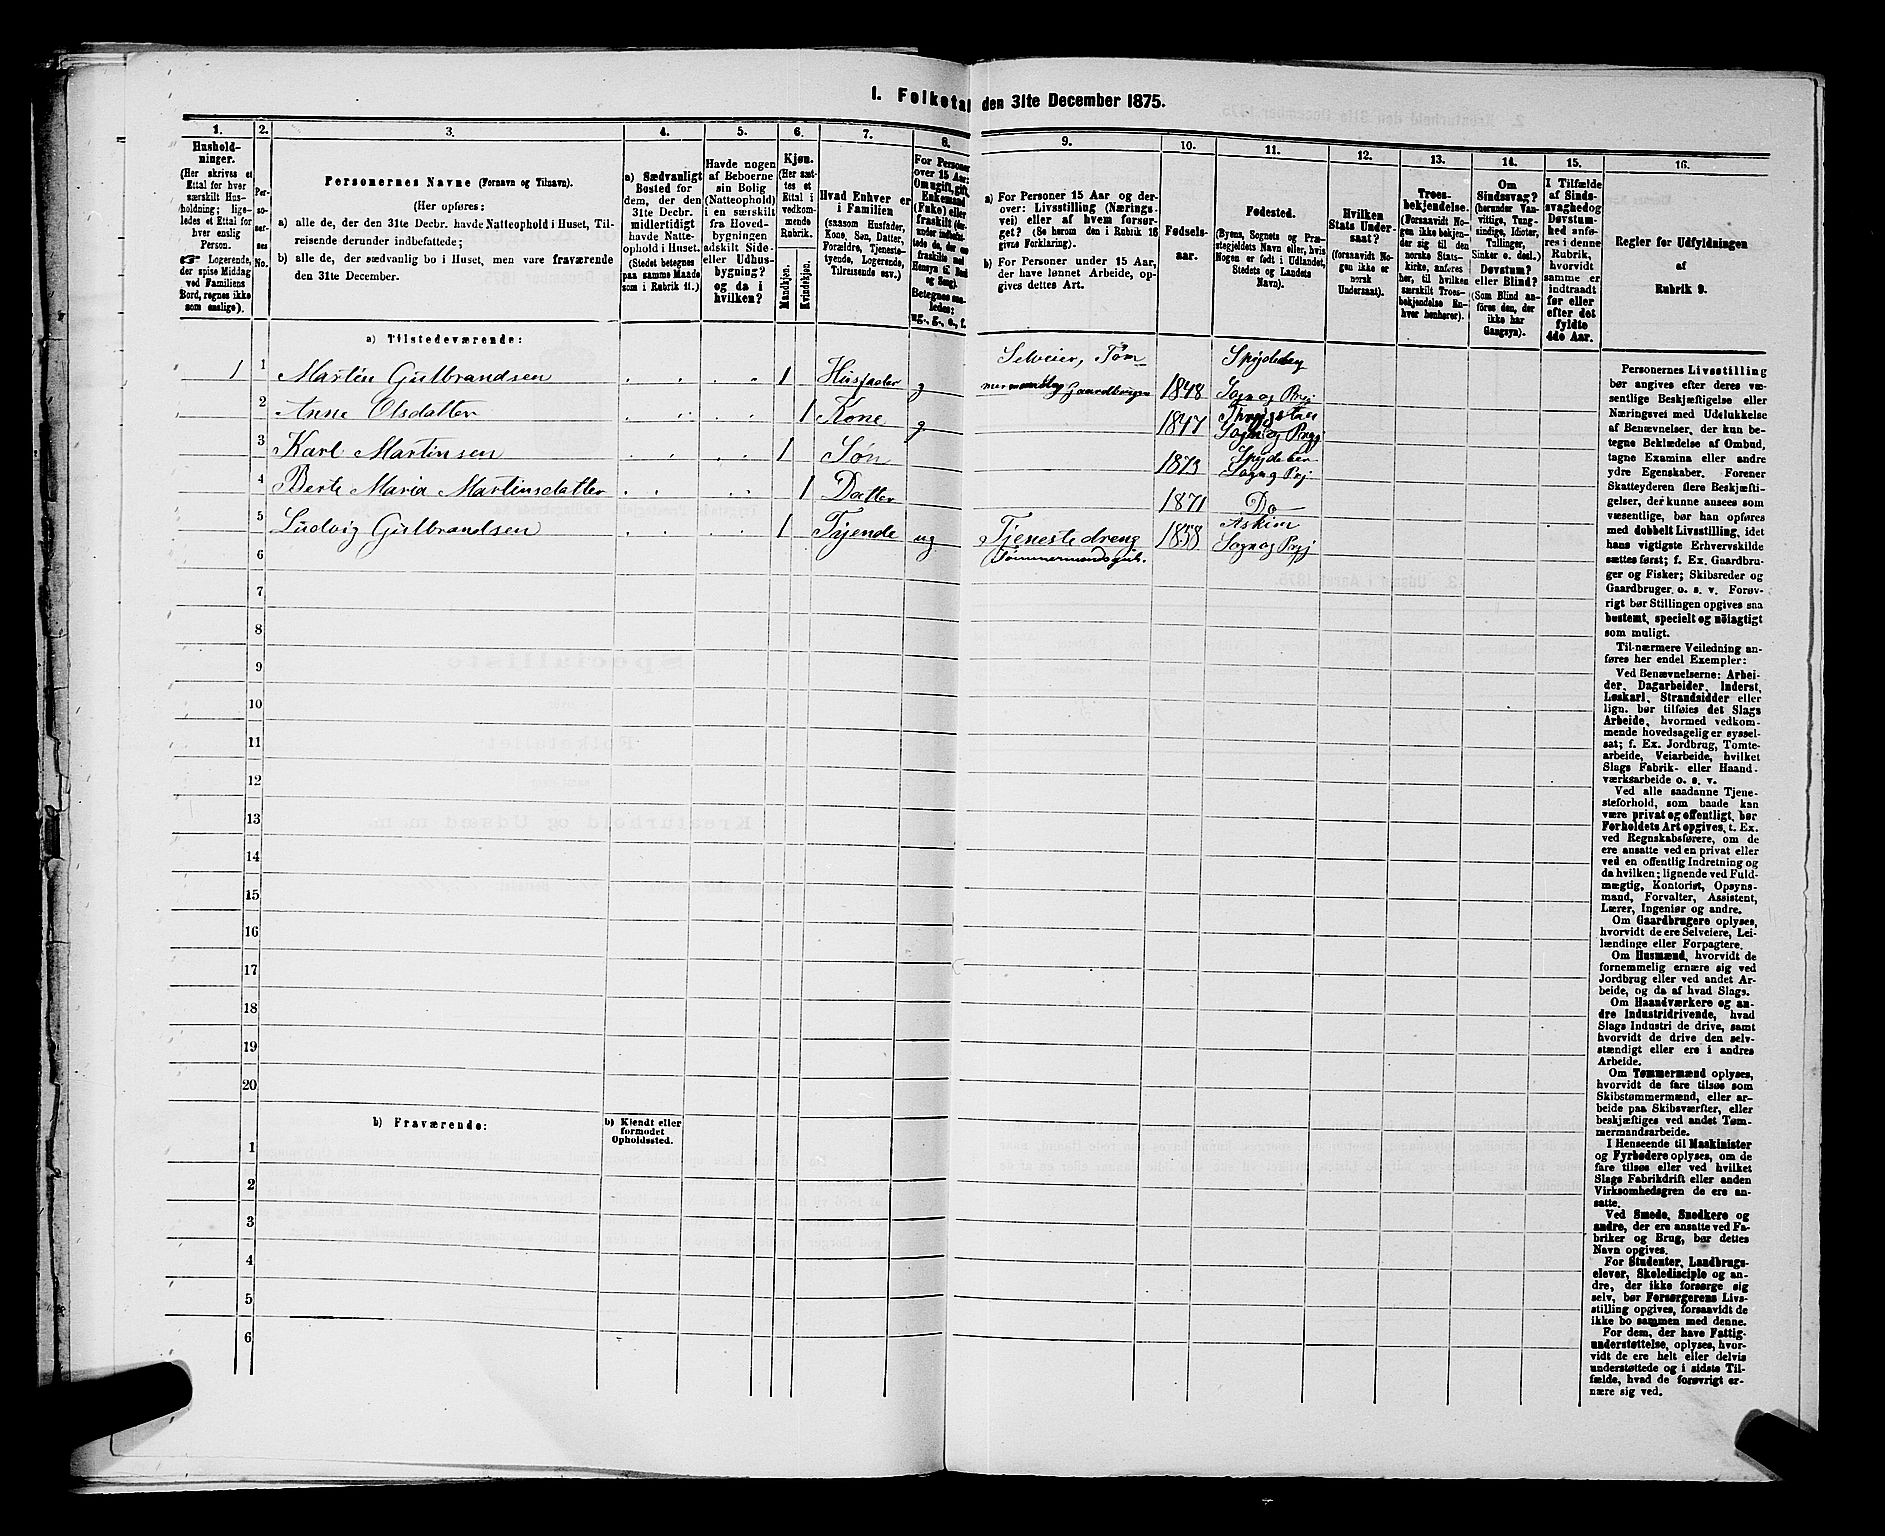 1. Folketal den 31te December 1875.
1. 2. 3. 4. 5. 6. 7. 8. 9. 10. 11. 12. 13. 14. 15. 16.
Hushold-
ninger.
(Her skrives et
Ettal for hver
særskilt Hus-
holdning; lige-
ledes et Ettal for
hver enslig
Person.
Logerende,
der spise Middag
ved Familiens
Bord, regnes ikke
som enslige).
Per-
so-
ner-
nes
No.
Personernes Navne (Fornavn og Tilnavn).
(Her opføres:
a) alle de, der den 31te Decbr. havde Natteophold i Huset, Til-
reisende derunder indbefattede;
b) alle de, der sædvanlig bo i Huset, men vare fraværende
den 31te December.
a) Sædvanligt
Bosted for
dem, der den
31te Decbr.
midlertidigt
havde Natte-
ophold i Huset.
(Stedet betegnes
paa samme Maade
som i Rubrik 11.)
Havde nogen
af Beboerne
sin Bolig
(Natteophold)
i en særskilt
fra Hoved-
bygningen
adskilt Side-
eller Udhus-
bygning?
og da i
hvilken?
Kjøn.
(Her sæt-
tes et
Ettal i
vedkom-
mende
Rubrik.
Mandkjøn.
Kvindekjøn.
Hvad Enhver er
i Familien
(saasom Husfader,
Kone, Søn, Datter,
Forældre, Tjeneste-
tyende, Logerende,
Tilreisende osv.)
For Personer
over 15 Aar:
Om ugift, gift,
Enkemand
(Enke) eller
fraskilt
Betegnes saa-
ledes:
ug., g., e., f.
a) For Personer 15 Aar og der-
over: Livsstilling (Nærings-
vei) eller af hvem forsør-
get? (Se herom den i Rubrik 16
givne Forklaring).
b) For Personer under 15 Aar,
der have lønnet Arbeide, op-
gives dettes Art.
Fødsels-
aar.
Fødested.
(Byens, Sognets og Præ-
stegjeldets Navn eller, hvis
Nogen er født i Udlandet,
Stedets og Landets
Navn).
Hvilken
Stats Under-
saat?
(forsaavidt No-
gen ikke er
norsk
Undersaat).
Troes-
bekjendelse.
(Forsaavidt No-
gen ikke bekjen-
der sig til den
norske Stats-
kirke, anføres
her, til hvilken
særskilt Troes-
bekjendelse En-
hver henhører).
Om
Sindssvag?
(herunder Van-
vittige, Tung-
sindige, Idioter,
Tullinger,
Sinker o. desl.)
Døvstum?
eller Blind?
(Som Blind an-
føres den, der
ikke har
Gangsyn).
I Tilfælde
af Sinds-
svaghed og
Døvstum-
hed anfø-
res i denne
Rubrik,
hvorvidt
samme er
indtraadt
før eller
efter det
fyldte
4de Aar.
Regler for Udfyldningen
af
Rubrik 9.
a) Tilstedeværende:
Selveier, Tøm Spydeberg
1 1 Martin Gulbrandsen 1 Husfader g Gaardbruger 1848 Sogn og Prgj
2 Anne Olsdatter 1 Kone g 1847 Sogn og Prgj
3 Karl Martinsen 1 Søn 1873 Spydeber Sogn og Prj
4 Berte Maria Martinsdatter 1 Datter 1871 Do
5 Ludvig Gulbrandsen 1 Tyende ug Tjenestedreng 1858 Askim Sogn og Prgj
6
7
8
9
10
11
12
13
14
15
16
17
18
19
20
b) Fraværende:
b) Kjendt eller
formodet
Opholdssted.
1
2
3
4
5
6
Personernes Livsstilling
bør angives efter deres væ-
sentlige Beskjæftigelse eller
Næringsvei med Udelukkelse
af Benævnelser, der kun be-
tegne Beklædelse af Ombud,
tagne Examina eller andre
ydre Egenskaber. Forener
Skatteyderen flere Beskjæfti-
gelser, der kunne ansees som
væsentlige, bør han opføres
med dobbelt Livsstilling, idet
hans vigtigste Erhvervskilde
sættes først; f. Ex. Gaardbru-
ger og Fisker; Skibsreder og
Gaardbruger o. s. v. Forøv-
rigt bør Stillingen opgives saa
bestemt, specielt og nöiagtigt
som muligt.
Til nærmere Veiledning an-
føres her endel Exempler:
Ved Benævnelserne: Arbei-
der, Dagarbeider, Inderst,
Løskarl, Strandsidder eller
lign. bør tilføies det Slags
Arbeide, hvormed vedkom-
mende hovedsagelig er syssel-
sat; f. Ex. Jordbrug, Tomte-
arbeide, Veiarbeide, hvilket
Slags Fabrik- eller Haand-
værksarbeide o. s. v.
Ved alle saadanne Tjene-
steforhold, som baade kan
være privat og offentligt, bør
Forholdets Art opgives, t. Ex.
ved Regnskabsførere, om de
ere ansatte ved en privat eller
ved en offentlig Indretning og
da hvilken; lignende ved Fuld-
mægtig, Kontorist, Opsyns-
mand, Forvalter, Assistent,
Lærer, Ingeniør og andre.
Om Gaardbrugere oplyses,
hvorvidt de ere Selveiere, Lei-
lændinge eller Forpagtere.
Om Husmænd, hvorvidt de
fornemmelig ernære sig ved
Jordbrug eller ved andet Ar-
beide, og da af hvad Slags.
Om Haandværkere og an-
dre Industridrivende, hvad
Slags Industri de drive, samt
hvorvidt de drive den selv-
stændigt eller ere i andres
Arbeide.
Om Tømmermænd oplyses,
hvorvidt de fare tilsøs som
Skibstømmermænd, eller ar-
beide paa Skibsværfter, eller
beskjæftiges ved andet Tøm-
mermandsarbeide.
I Henseende til Maskinister
og Fyrbødere oplyses, om de
fare tilsøs eller ved hvilket
Slags Fabrikdrift eller anden
Virksomhedsgren de ere an-
satte.
Ved Smede, Snedkere og
andre, der ere ansatte ved Fa-
briker og Brug, bør dettes
Navn opgives.
For Studenter, Landbrugs-
elever, Skoledisciple og an-
dre, der ikke forsørge sig
selv, bør Forsørgerens Livs-
stilling opgives, forsaavidt de
ikke bo sammen med denne.
For dem, der have Fattig-
understøttelse, oplyses, hvor-
vidt de ere helt eller delvis
understøttede og i sidste Til-
fælde, hvad de forøvrigt er-
nære sig ved.